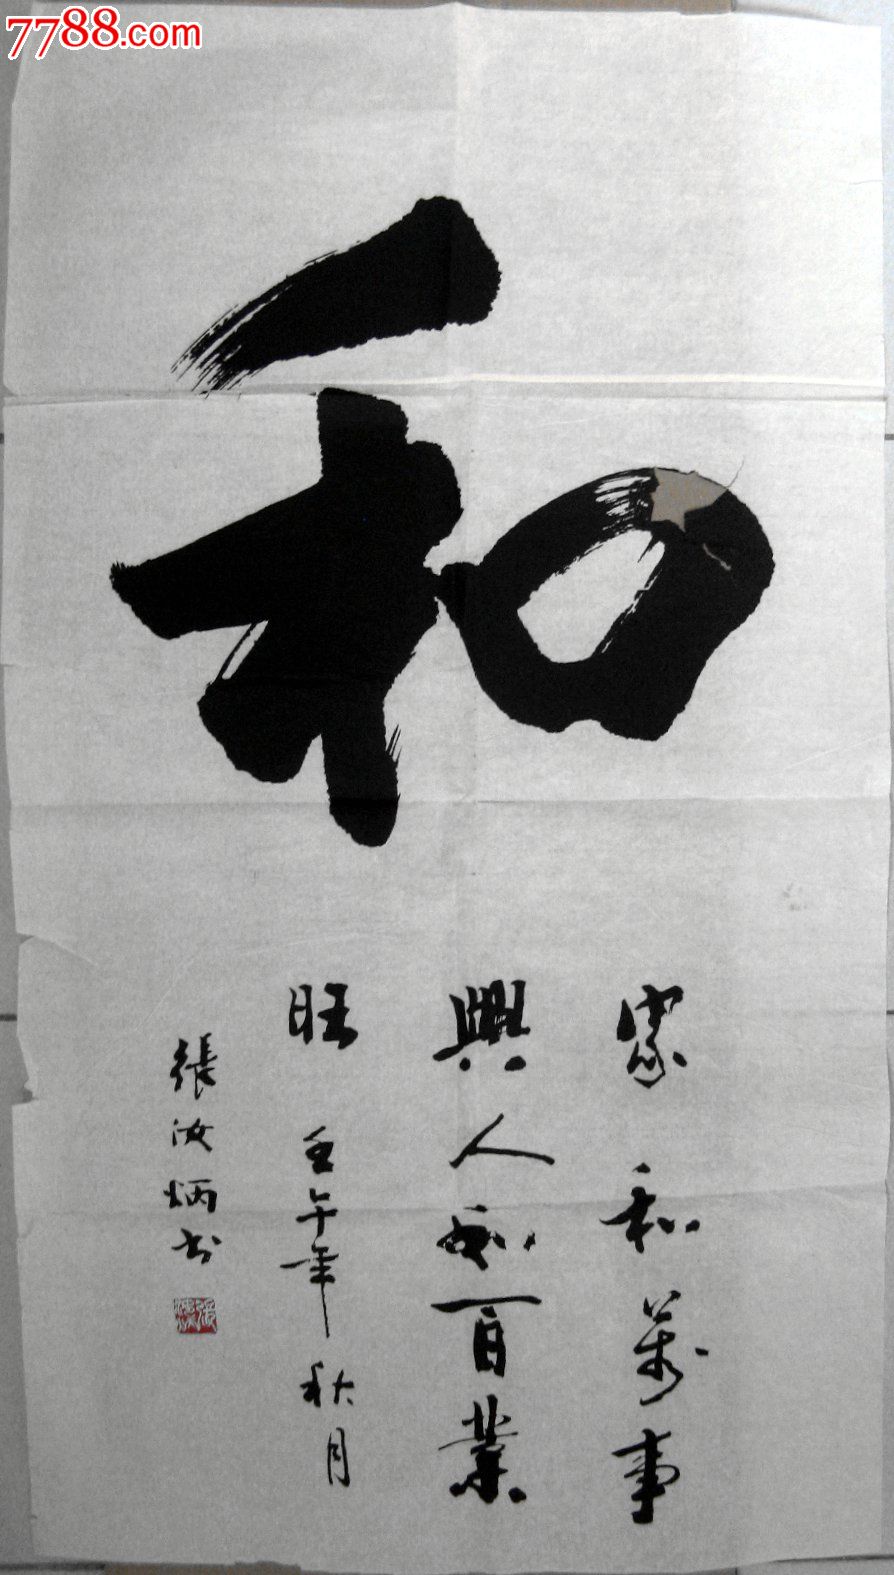 7788.com
和
家和萬事
興人和百業
旺 壬午年秋月
張汝炳书